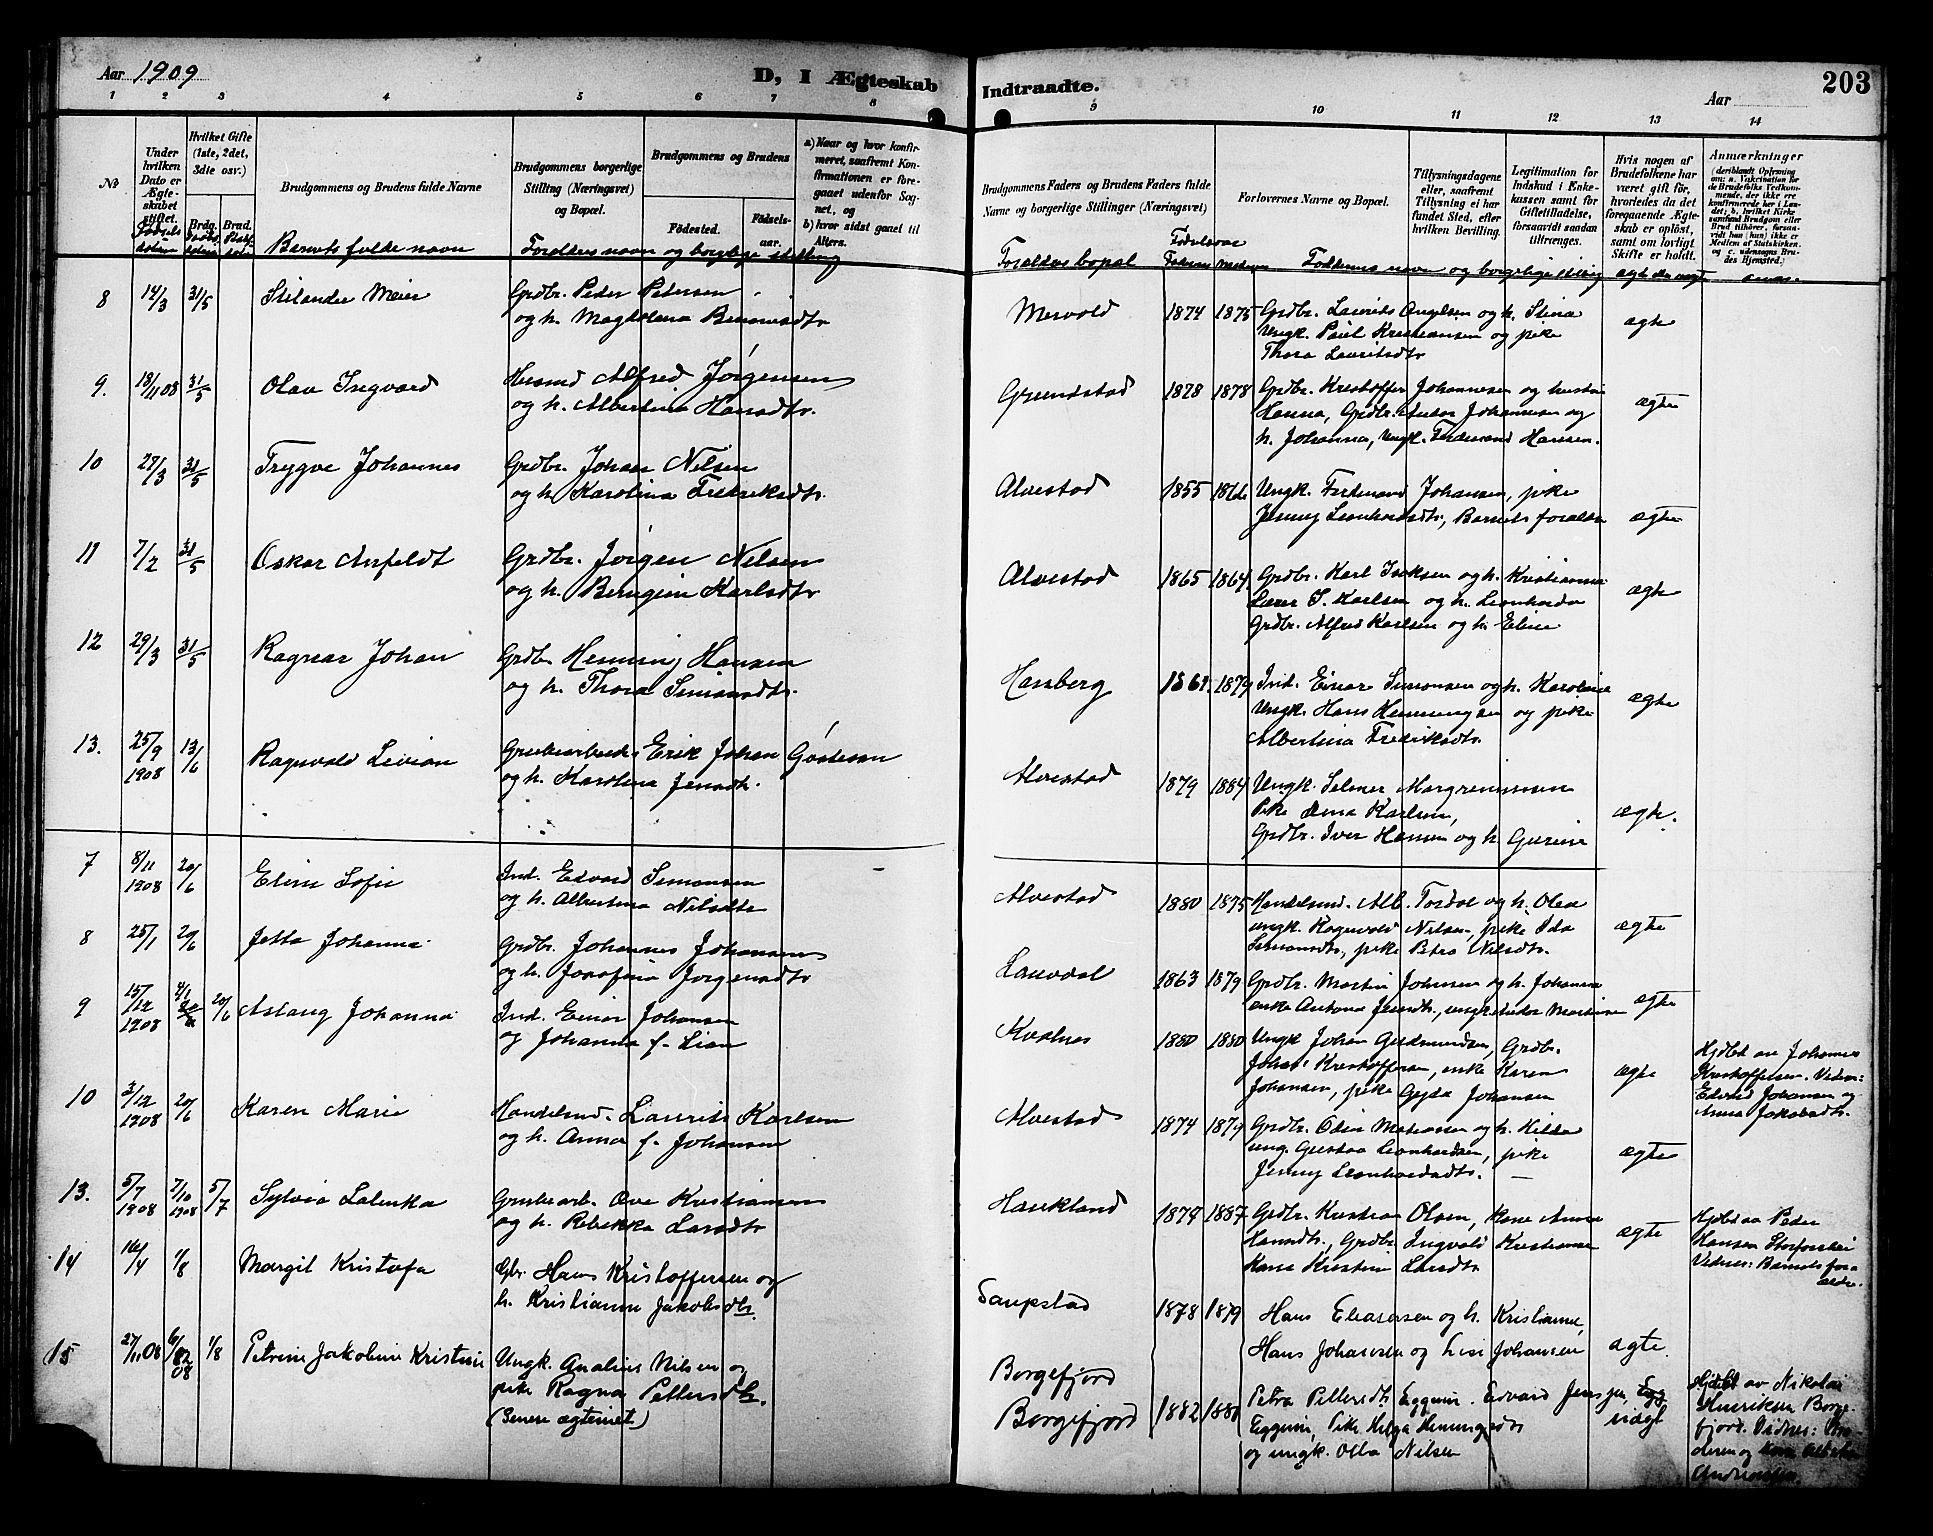 Aar 1909
D, I Ægteskab Indtraadte.
Aar
203
1 2 3 4 5 6 7 8 9 10 11 12 13 14
№
Under hvilken Dato er Ægteskabet stiftet.
Hvilket Gifte (1ste, 2det, 3die osv.)
Brdg. Brud.
Brudgommens og Brudens fulde Navne
Brudgommens borgerlige Stilling (Næringsvei) og Bopæl.
Brudgommens og Brudens
Födested.
Födselsaar.
a) Naar og hvor konfirmeret, saafremt Konfirmationen er foregaaet udenfor Sognet, og
b) hvor sidst gaaet til Alters.
Brudgommens Faders og Brudens Faders fulde Navne og borgerlige Stillinger (Næringsvei)
Forlovernes Navne og Bopæl.
Tillysningsdagene eller, saafremt Tillysning ei har fundet Sted, efter hvilken Bevilling.
Legitimation for Indskud i Enkekassen samt for Giftetilladelse, forsaavidt saadan tiltrænges.
Hvis nogen af Brudefolkene har været gift för, hvorledes da det foregaaende Ægteskab er oplöst, samt om lovligt Skifte er holdt.
Anmærkninger
Barnets fulde navn
Foreldres navn og borglige stilling
Foreldres bopæl
Fødselsaar
Faderens Moderens
Faddernes navn og borgerlige stilling
8 14/3 31/5
Grdbr. Peder Petersen
og h. Magdalena
Mervold 1874 1875
Grdbr. Laurits Angelsen og h. Stina
Ungk. Paul Kristiansen og pike
Thora Lauritsdtr
ægte
9. 18/11 08 31/5 Olav Ingvard
Alfred Jörgensen
og h. Albertina Hansdtr.
Grundstad 1878 1878
Grdbr. Kristoffer Johannesen og hustru
Hanna, Grdbr. Andor Johannesen og
h. Johanna, Ungk. Ferdinand Hansen.
ægte
10 27/3 31/5 Trygve Johannes
Grdbr. Johan Nilsen
og h. Karolina Fredriksdtr.
Alvestad 1855 1866
Ungk. Ferdinand Johansen, pike
Jenny Leonhardsdtr., Barnets foreldre
ægte
11 7/2 31/5 Oskar Anfeldt
Grdbr. Jörgen Nilsen
og h. Karlsdtr
Alvestad 1865 1864
Grdbr. Karl Isaksen og h. Kristianna
Lærer S. Karlsen og h. Leonharda
Grdbr. Alfred Karlsen og h. Eline
ægte
12 29/3 31/5 Ragnar Johan
Grdbr Henning Hansen
og h. Thora Simonsdtr.
Hansberg 1879
Ind. Einar Simonsen og h. Karoline
Ungk. Hans Henningsen og pike
Albertina Fredriksdtr.
ægte
13. 25/9 1908 13/6 Ragnvald Livian
Grubearbeider Erik Johan
og h. Karolina Jensdtr.
Alvestad 1879 1884
Ungk. Selmer
Pike Lena Karlsen,
Grdbr. Iver Hansen og h. Gurine
ægte.
7 8/11 1908 20/6 Eline Sofie
Ind. Edvard Simonsen
og h. Albertina Nilsdtr
Alvestad 1880 1875
Handelsmd. Alb. Tordal og h. Olea
ungk. Ragnvald Nilsen, pike Ida
Simonsdtr., pike Petra Nilsdtr.
ægte
8 25/1 20/6 Jetta Johanna.
Grdbr. Johannes Johansen
og h. Josefina Jörgensdtr
Lauvdal 1863 1879
Grdbr. Martin Johnsen og h. Johanna
enke Antona Jensdtr., ungk. Andor Martinsen
ægte
9 15/12 1908 20/6 Aslaug Johanna.
Ind. Einar Johansen
og Johanna f. Lian
Kvalnes 1880 1880
Ungk Johan Gudmundsen, Grdbr.
Johas Kristoffersen, enke Karen
Johansen, pike Gyda Johansen
ægte
Hjdbt av Johannes
Kristoffersen. Vidner:
Edvard Johansen og
Anna Jakobsdtr.
10 3/12 1908 20/6 Karen Marie
Handelsmd. Laurits Karlsen
og h. Anna f. Johansen
Alvestad 1874 1879
Grdbr. Odin Matiassen og h. Hilda
ung. Gustav Leonhardsen, pike
Jenny Leonhardsdtr. —
ægte
13. 5/7 1908 7/10 1908 5/7 Sylvia Lalinka
Grubearb. Ove Kristiansen
og h. Rebekka Larsdtr
Haukland 1879 1887
Grdbr. Kristian Olsen, kone Anna
Hansdtr., Grdbr. Ingvald Kristiansen
Kone Kristine Larsdtr
ægte
Hjdbt av Peder
Hansen Storforshei
Vidner: Barnets foreldre.
14 16/4 1/8 Margit Kristofa
Gbr. Hans Kristoffersen og
h. Kristianne Jakobsdtr.
Saupstad 1878 1879
Hans Eleasersen og h. Kristianne,
Hans Johansen og Lise Johansen
ægte.
Borgefjord
15 27/11 08 1/8 Petrine Jakobine Kristine
Ungk. Analius Nilsen og
pike Ragna Pettersdtr.
(Senere ægteviet)
Borgefjord 1882
Petra Pettersdtr Eggum. Edvard Jensen,
Eggum, Pike Helga Henningsdtr
og ungk. Olla Nilsen
uægt
Hjdbt av Nikolai
Henriksen Borgefjord. Vidner:
Andreassen.